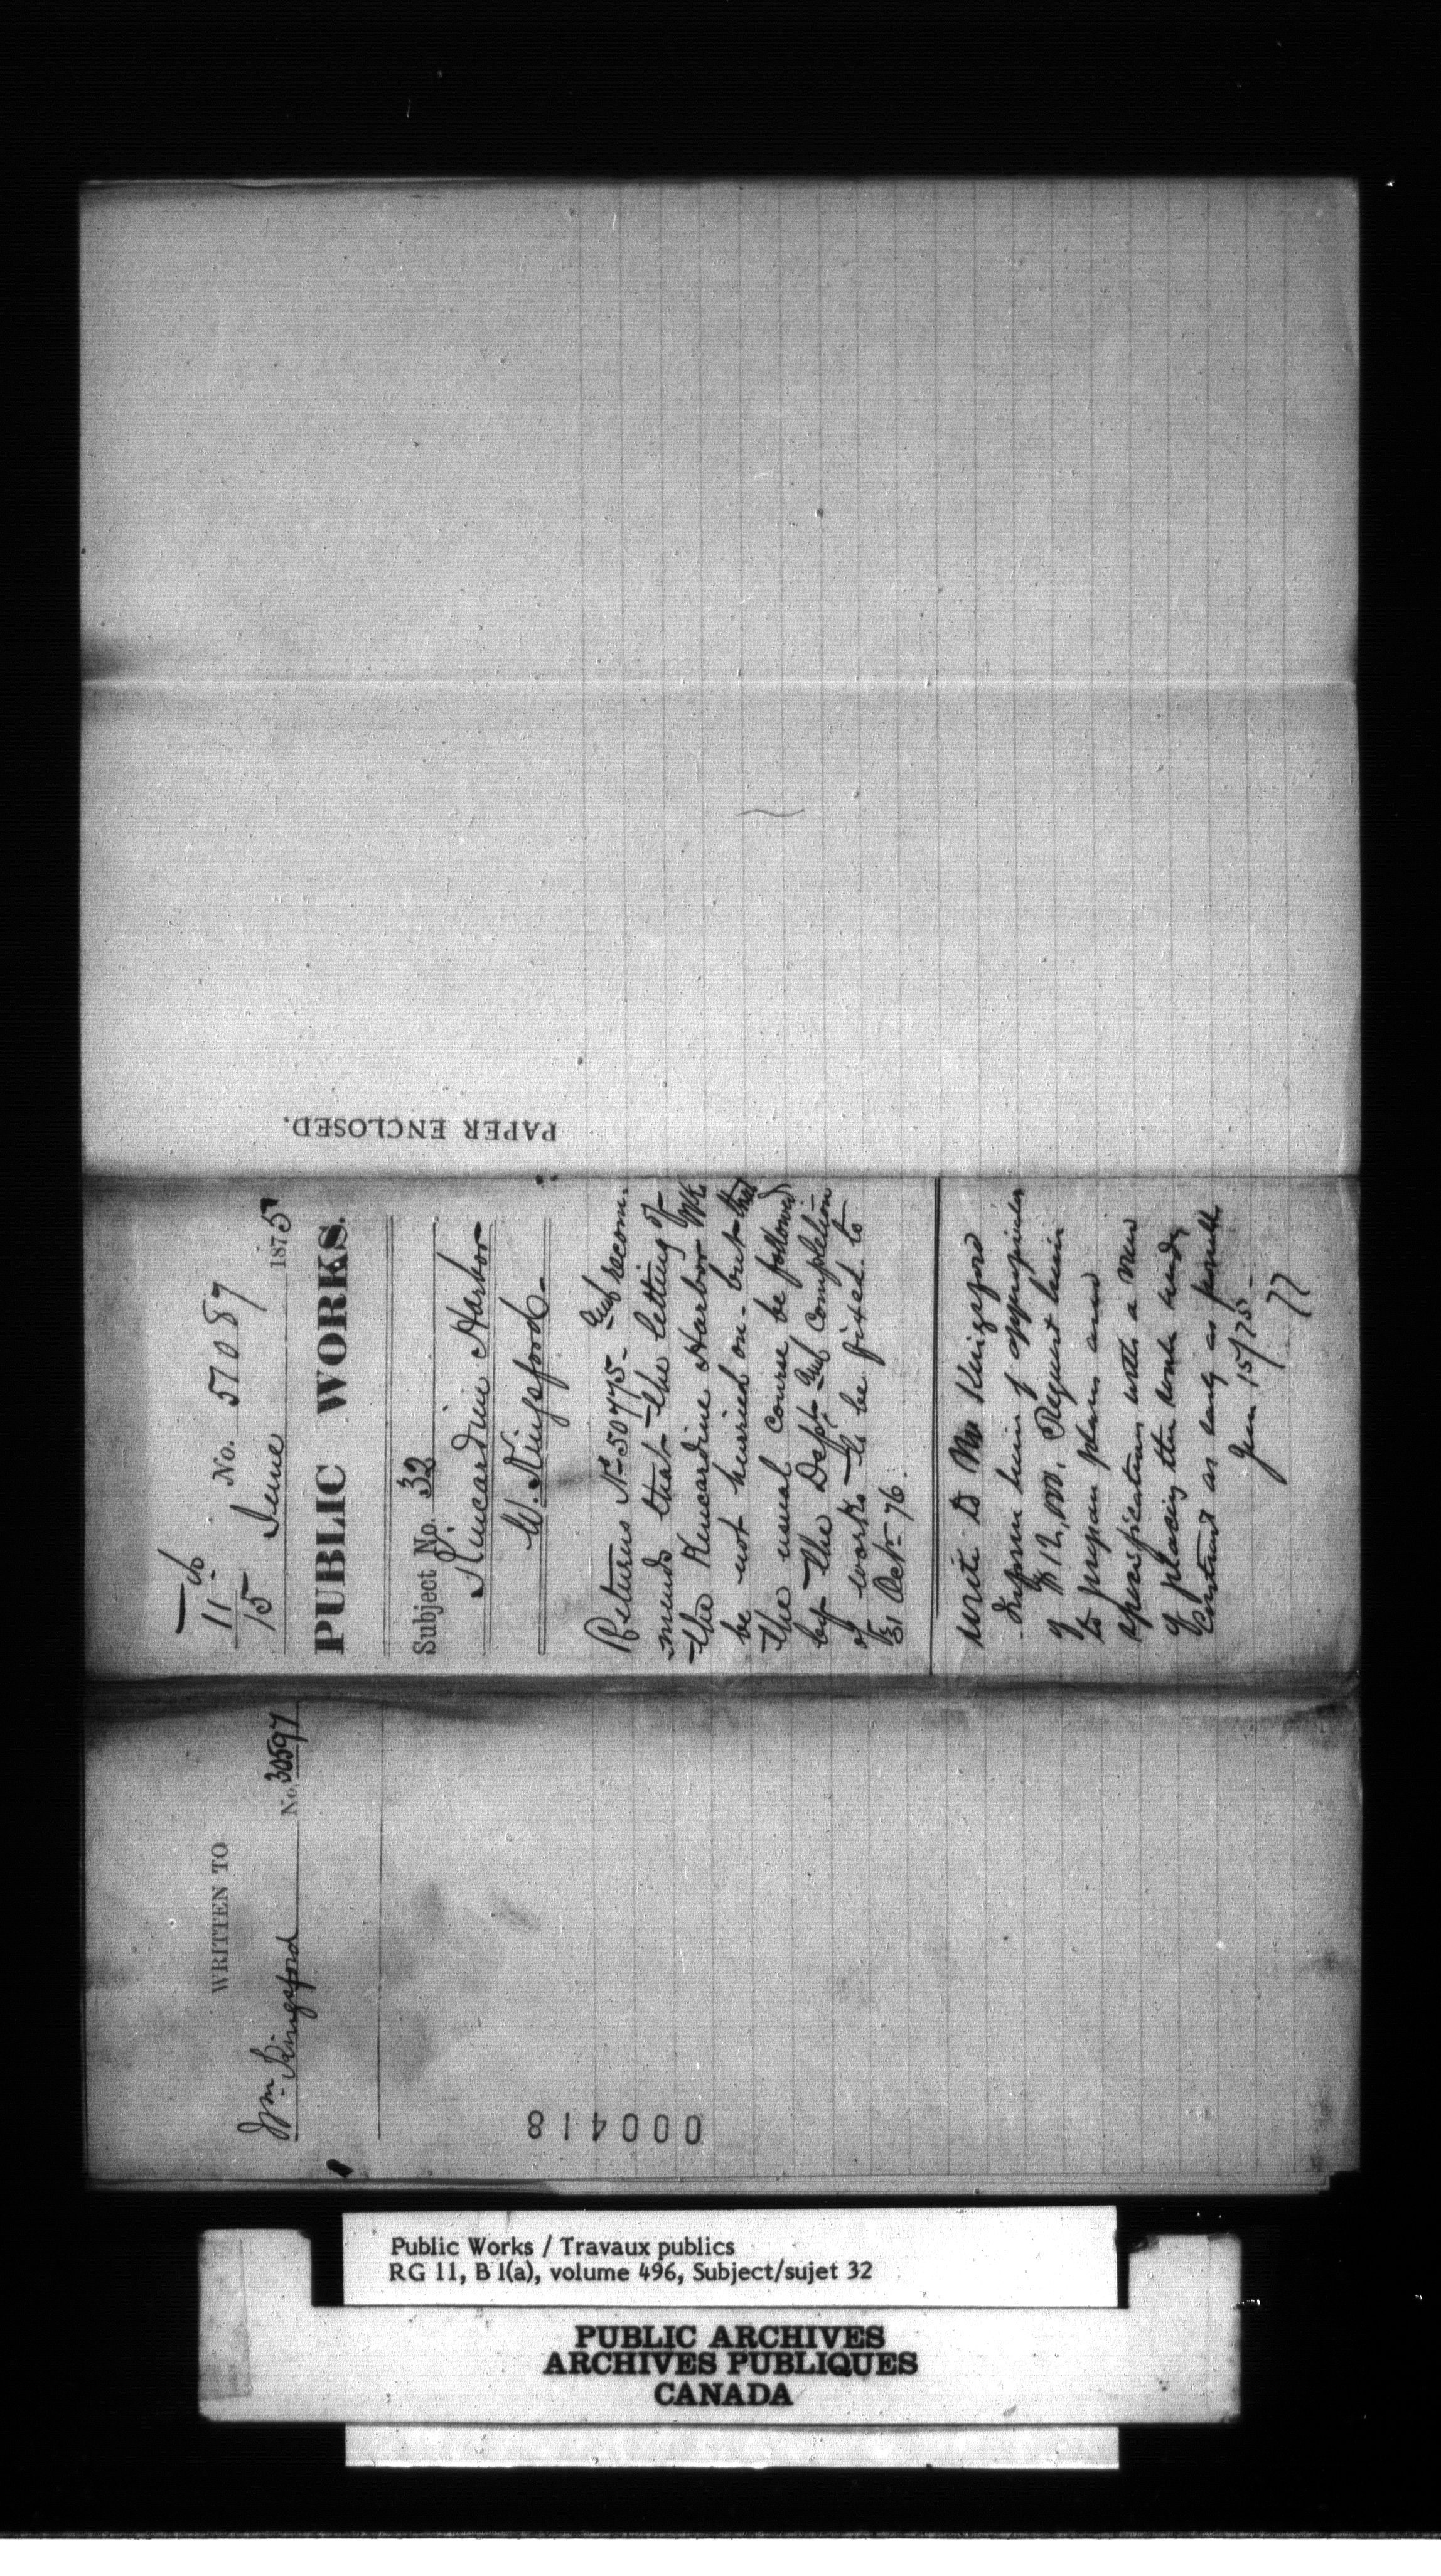 PAPER ENCLOSED.
11
15 No. 51087
June 1875
PUBLIC WORKS.
Subject No. 32
Kincardine Harbor
W. Kingsford.
Returns No 50775 - and recom-
mends that the letting of
the Kincardine Harbor Wks
be not hurried on - but that
the usual course be followed
by the Dept. and completion
of works to be fixed to
31 Oct - 76.
Write to Mr Kingsford
Inform him of appropriation
of $12,000. Request him
to prepare plans and
specification with a view
of placing the work under
Contract as early as possible
June 15/75 -
WRITTEN TO
Wm. Kingsford No. 30597
000418
Public Works / Travaux publics
RG 11, B 1(a), volume 496, Subject/sujet 32
PUBLIC ARCHIVES
ARCHIVES PUBLIQUES
CANADA